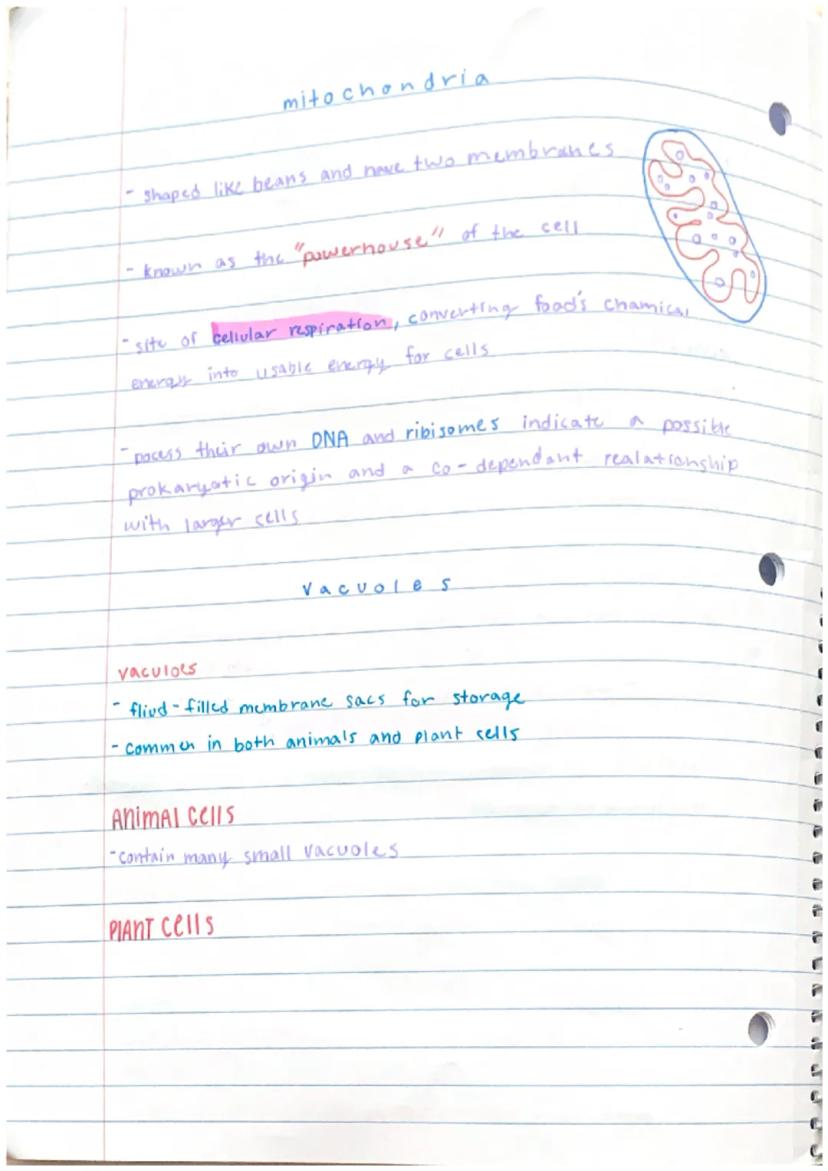 mitochondria
- shaped like beans and have two membranes
- known as the "powerhouse" of the cell
- site of cellular respiration, converting food's chamical
energy into usable energy for cells
- pocess their own DNA and ribisomes indicate a possible
prokaryotic origin and a co-dependant realationship
with larger cells
Vacuoles
vaculoes
- fliud-filled membrane sacs for storage
- common in both animals and plant cells
Animal cells
- contain many small vacuoles
Plant cells